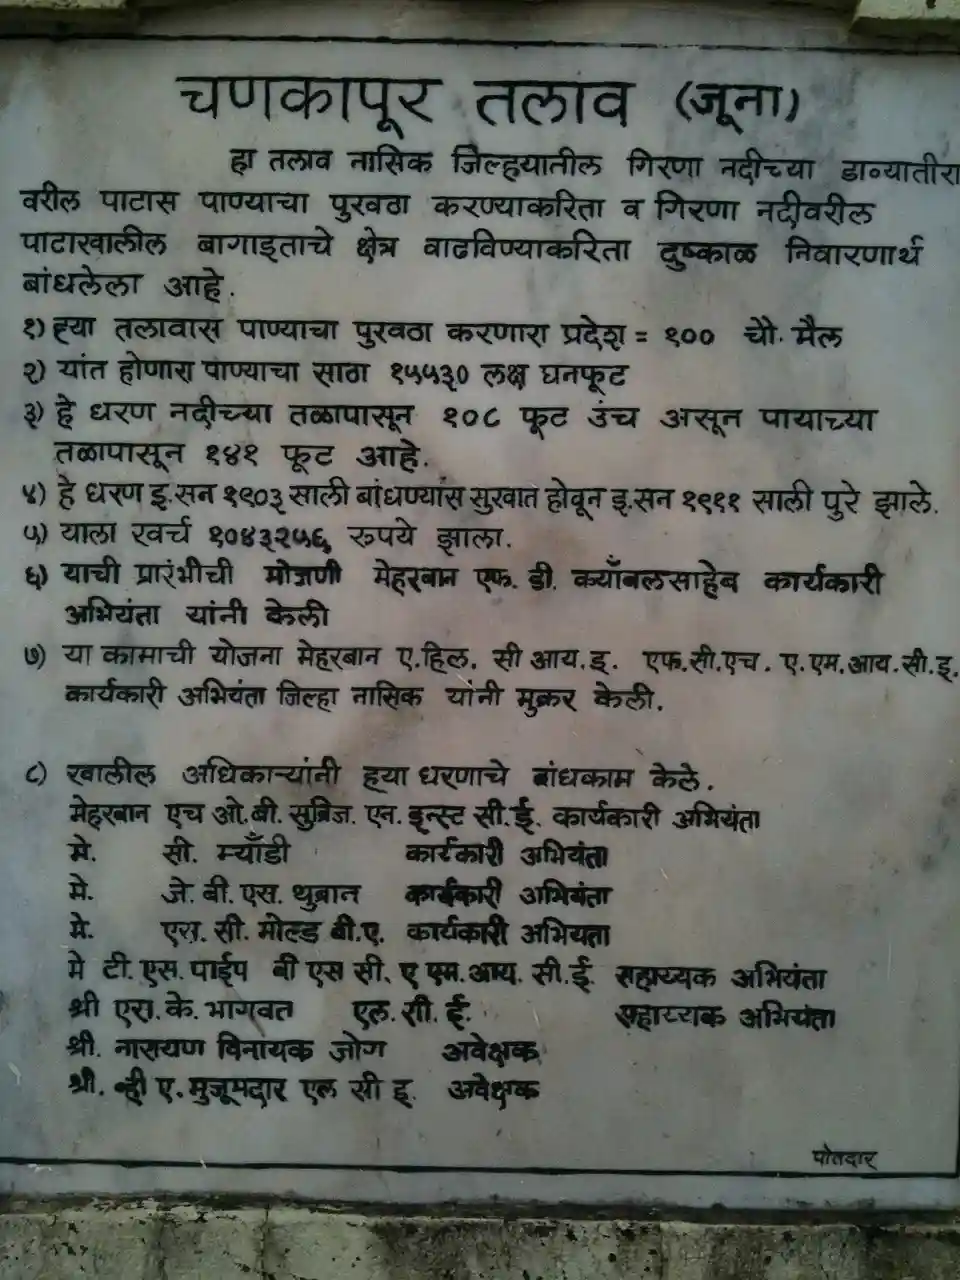 चणकापूर तलाव (जूना)
हा तलाव नासिक जिल्हयातील गिरणा नदीच्या डाव्यातीरा
वरील पाटास पाण्याचा पुरवठा करण्याकरिता व गिरणा नदीवरील
पाटाखालील बागाइताचे क्षेत्र वाढविण्याकरिता दुष्काळ निवारणार्थ
बांधलेला आहे.
१) ह्या तलावास पाण्याचा पुरवठा करणारा प्रदेश = १०० चौ. मैल
२) यांत होणारा पाण्याचा साठा १५५३० लक्ष घनफूट
३) हे धरण नदीच्या तळापासून १०८ फूट उंच असून पायाच्या
तळापासून १४१ फूट आहे.
४) हे धरण इ.सन १९०३ साली बांधण्यांस सुरवात होवून इ.सन १९११ साली पुरे झाले.
५) याला खर्च १०४३२५६ रुपये झाला.
६) याची प्रारंभीची मोजणी मेहरबान एफ. डी. कयाँबलसाहेब कार्यकारी
अभियंता यांनी केली
७) या कामाची योजना मेहरबान ए.हिल. सी आय.इ. एफ.सी.एच. ए.एम.आय.सी.इ.
कार्यकारी अभियंता जिल्हा नासिक यांनी मुक्रर केली.
८) खालील अधिकाऱ्यांनी हया धरणाचे बांधकाम केले.
मेहरबान एच ओ.बी. सुब्रिज. एन. इन्स्ट सी.ई. कार्यकारी अभियंता
मे. सी. म्याँडी कार्यकारी अभियंता
मे. जे. बी. एस. थुब्रान कार्यकारी अभियंता
मे. एस. सी. मोल्ड बी.ए. कार्यकारी अभियता
मे टी. एस. पाईप बी एस सी. ए एम. आय. सी. ई. सहाय्यक अभियंता
श्री एस. के. भागवत एल. सी. ई. सहाय्यक अभियंता
श्री. नारायण विनायक जोग अवेक्षक
श्री. व्ही ए. मुजूमदार एल सी इ. अवेक्षक
पोतदार